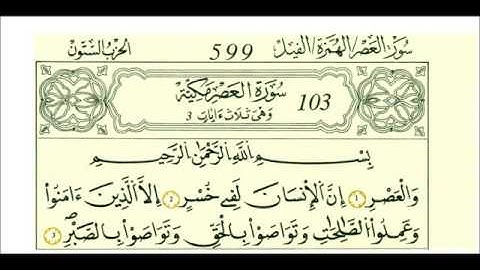 سُورَةُ العَصْرِ/الهُمَزَة/الفِيل 599 الحِزبُ السِّتُّون
سُورَةُ الْعَصْرِ مَكِّيَّةٌ 103
وَهْيَ ثَلَاثُ ءَايَاتٍ 3
بِسْمِ اللَّهِ الرَّحْمَٰنِ الرَّحِيمِ
وَالْعَصْرِ 1 إِنَّ الْإِنسَانَ لَفِي خُسْرٍ 2 إِلَّا الَّذِينَ ءَامَنُوا
وَعَمِلُوا الصَّالِحَاتِ وَتَوَاصَوْا بِالْحَقِّ وَتَوَاصَوْا بِالصَّبْرِ 3